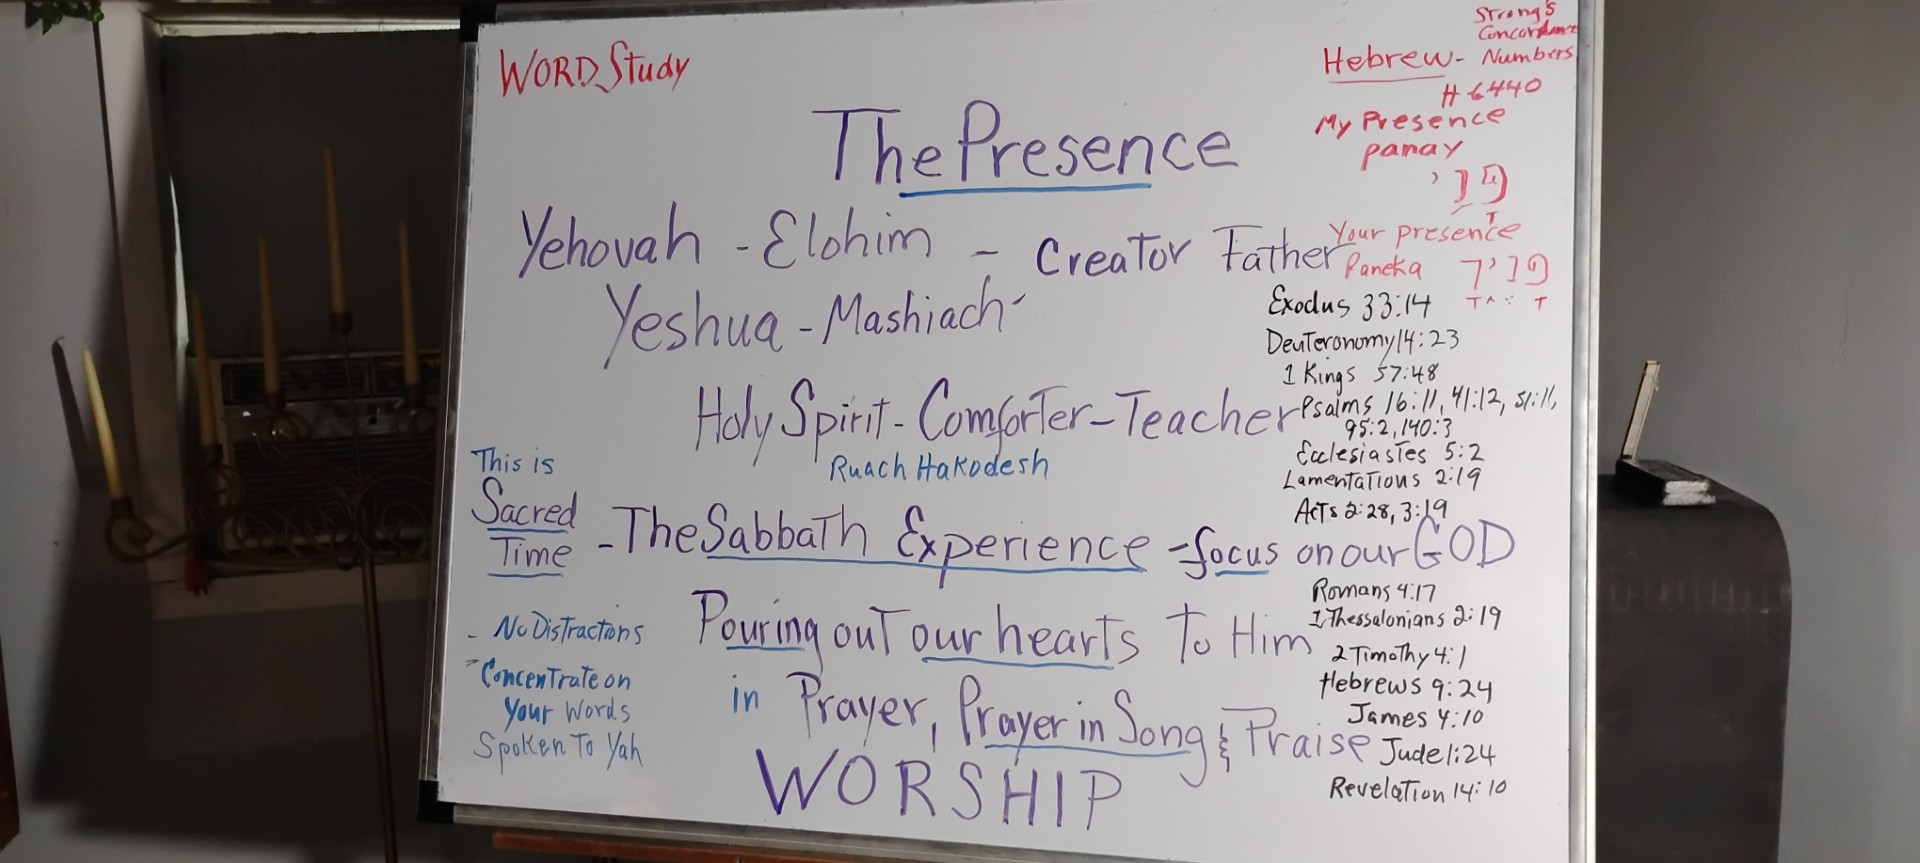 WORD Study
Strong's
Concordance
Hebrew - Numbers
H 6440
The Presence
My Presence
panay
פני
Your presence
Paneka פניך
Yehovah - Elohim - Creator Father
Yeshua - Mashiach
Holy Spirit - Comforter - Teacher
Ruach Hakodesh
Exodus 33:14
Deuteronomy 14:23
1 Kings 57:48
Psalms 16:11, 41:12, 51:11,
95:2, 140:3
Ecclesiastes 5:2
Lamentations 2:19
Acts 2:28, 3:19
This is
Sacred
Time - The Sabbath Experience - focus on our GOD
Romans 4:17
1 Thessalonians 2:19
2 Timothy 4:1
Hebrews 9:24
James 4:10
Jude 1:24
Revelation 14:10
- No Distractions
- Concentrate on
Your Words
Spoken To Yah
Pouring out our hearts To Him
in Prayer, Prayer in Song & Praise
WORSHIP